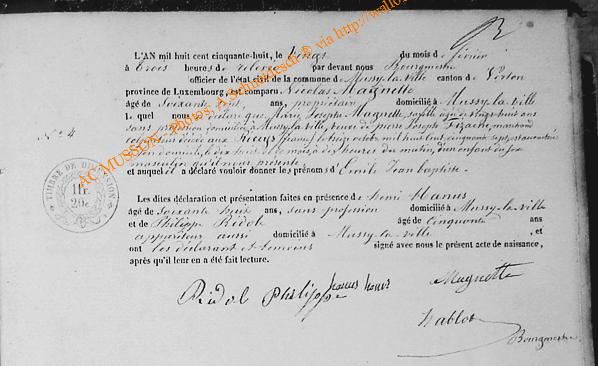 N° 4
L'AN mil huit cent cinquante-huit, le vingt du mois de février
à trois heures de relevée par devant nous Bourgmestre
officier de l'état civil de la commune de Mussy-la-Ville canton de Virton
province de Luxembourg, est comparu Nicolas Magnette
âgé de soixante trois ans, propriétaire domicilié à Mussy-la-ville
lequel nous a déclaré que Marie Joseph Magnette, sa fille âgée de vingt huit ans
sans profession domiciliée à Mussy-la-ville, veuve de Jean Joseph
colporteur décédé aux (france) le huit octobre mil huit cent cinquante sept est accouchée
en son domicile, le dix huit de ce mois, à dix heures du matin, d'un enfant du sexe
masculin qu'il nous présente
et auquel il a déclaré vouloir donner les prénoms d'Emile Jean baptiste.
Les dites déclaration et présentation faites en présence de henri Hanus
âgé de soixante huit ans, sans profession domicilié à Mussy-la-ville
et de Philippe Ridole âgé de cinquante ans
appariteur aussi domicilié à Mussy-la-ville, et
ont les déclarant et témoins signé avec nous le présent acte de naissance,
après qu'il leur en a été fait lecture.
Ridole Philippe hanus henri Magnette
Bourgmestre
TIMBRE DE DIMENSION
1fr.
20c.
AC MUSSON, Photos, A.Schmadesch © via http://wallo